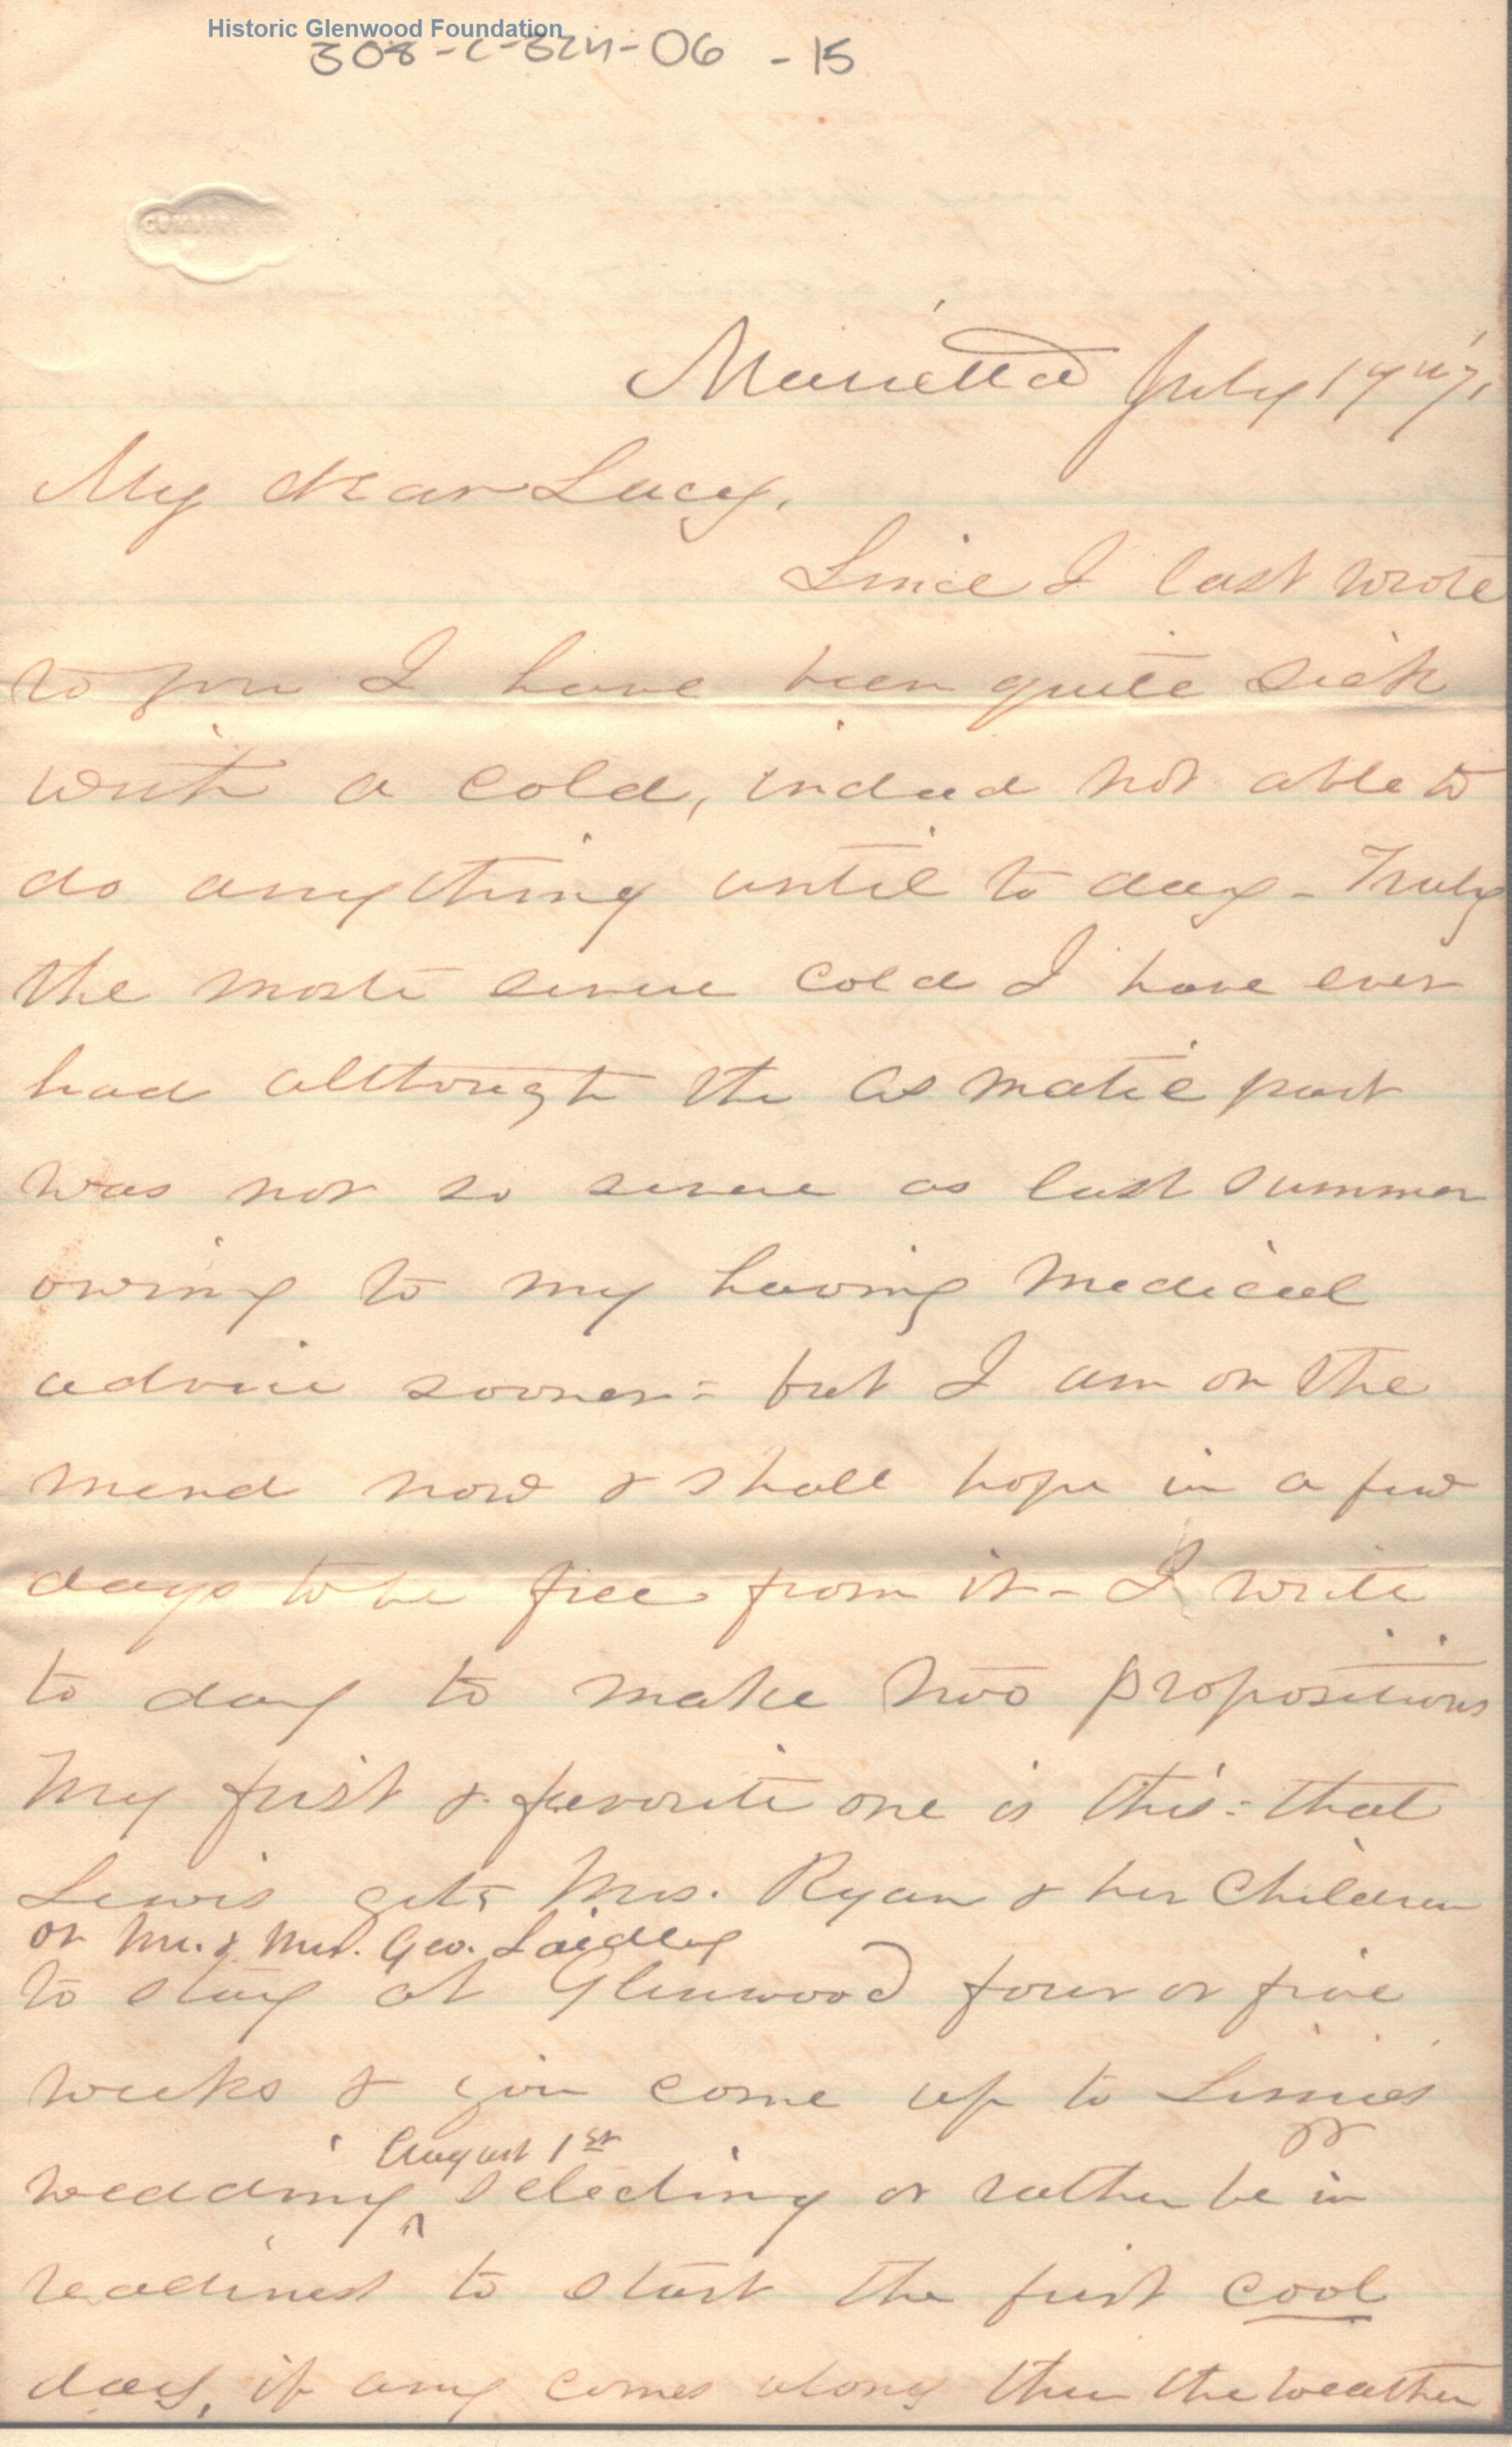 Historic Glenwood Foundation
308-C-324-06 -15
Marietta July 17th,
My dear Lucy,
Since I last wrote
to you I have been quite sick
with a cold, indeed not able to
do anything until to day - Truly
the most severe cold I have ever
had although the asmatic part
was not so severe as last summer
owing to my having medical
advice sooner = but I am on the
mend now & shall hope in a few
days to be free from it - I write
to day to make two propositions
My first & favorite one is this: that
Lewis gets Mrs. Ryan & her children
or Mr. & Mrs. Geo. Laidley
to stay at Glenwood four or five
weeks & you come up to
August 1st
wedding selecting or rather be in
readiness to start the first cool
day, if any comes along then the weather